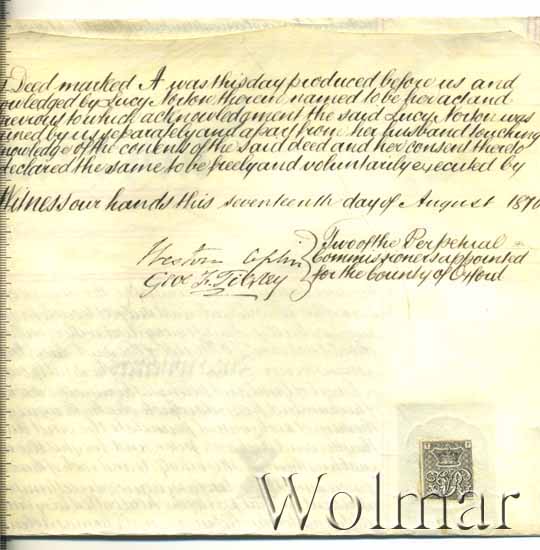 Deed marked A was this day produced before us and
owledged by Lucy Norton therein named to be her act and
previous to which acknowledgment the said Lucy Norton was
mined by us separately and apart from her husband touching
nowledge of the contents of the said deed and her consent thereto
declared the same to be freely and voluntarily executed by
Witness our hands this seventeenth day of August 187
Weston Aplin
Geo F. Tilsley
Two of the Perpetual
Commissioners appointed
for the County of Oxford
VR
Wolmar